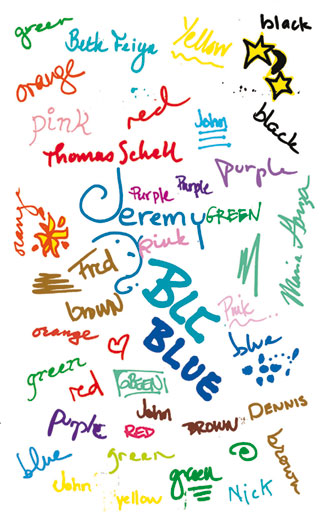 green
Beth Feiya
Yellow
black
orange
red
pink
John
black
Thomas Schell
purple
Purple
Purple
Jeremy
GREEN
orange
pink
Fred
BLC
brown
Pink
orange
BLUE
blue
green
red
GREEN
John
DENNIS
Purple
RED
BROWN
blue
green
brown
John
yellow
green
Nick